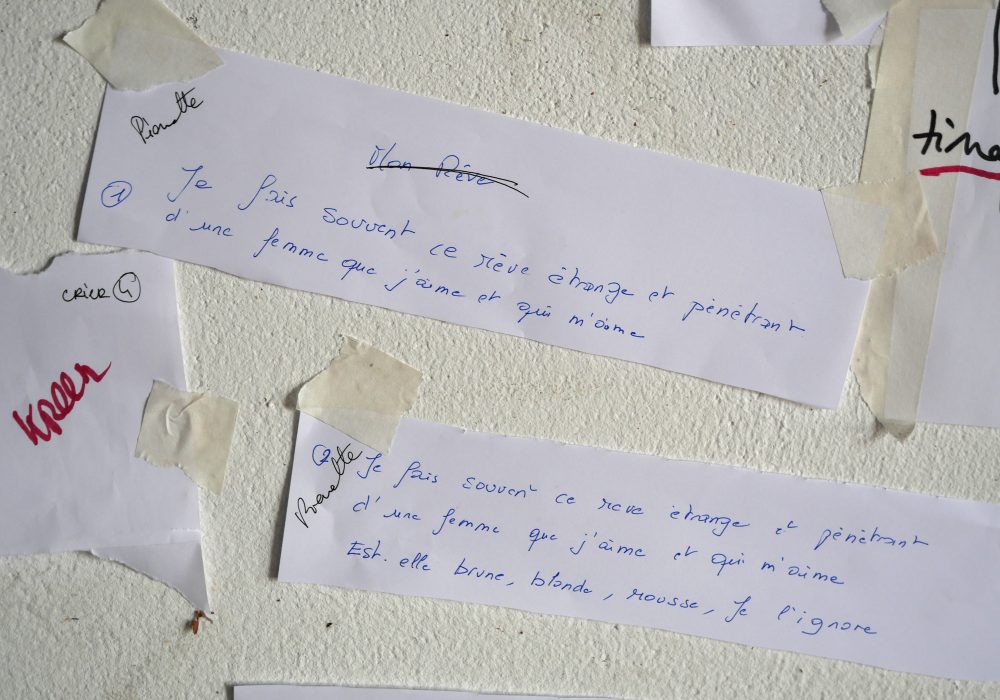 Pierrette
Mon Rêve
① Je fais souvent ce rêve étrange et pénétrant
d'une femme que j'aime et qui m'aime
crier ④
tine
② Je fais souvent ce reve étrange et pénétrant
d'une femme que j'aime et qui m'aime
Est. elle brune, blonde, rousse, Je l'ignore